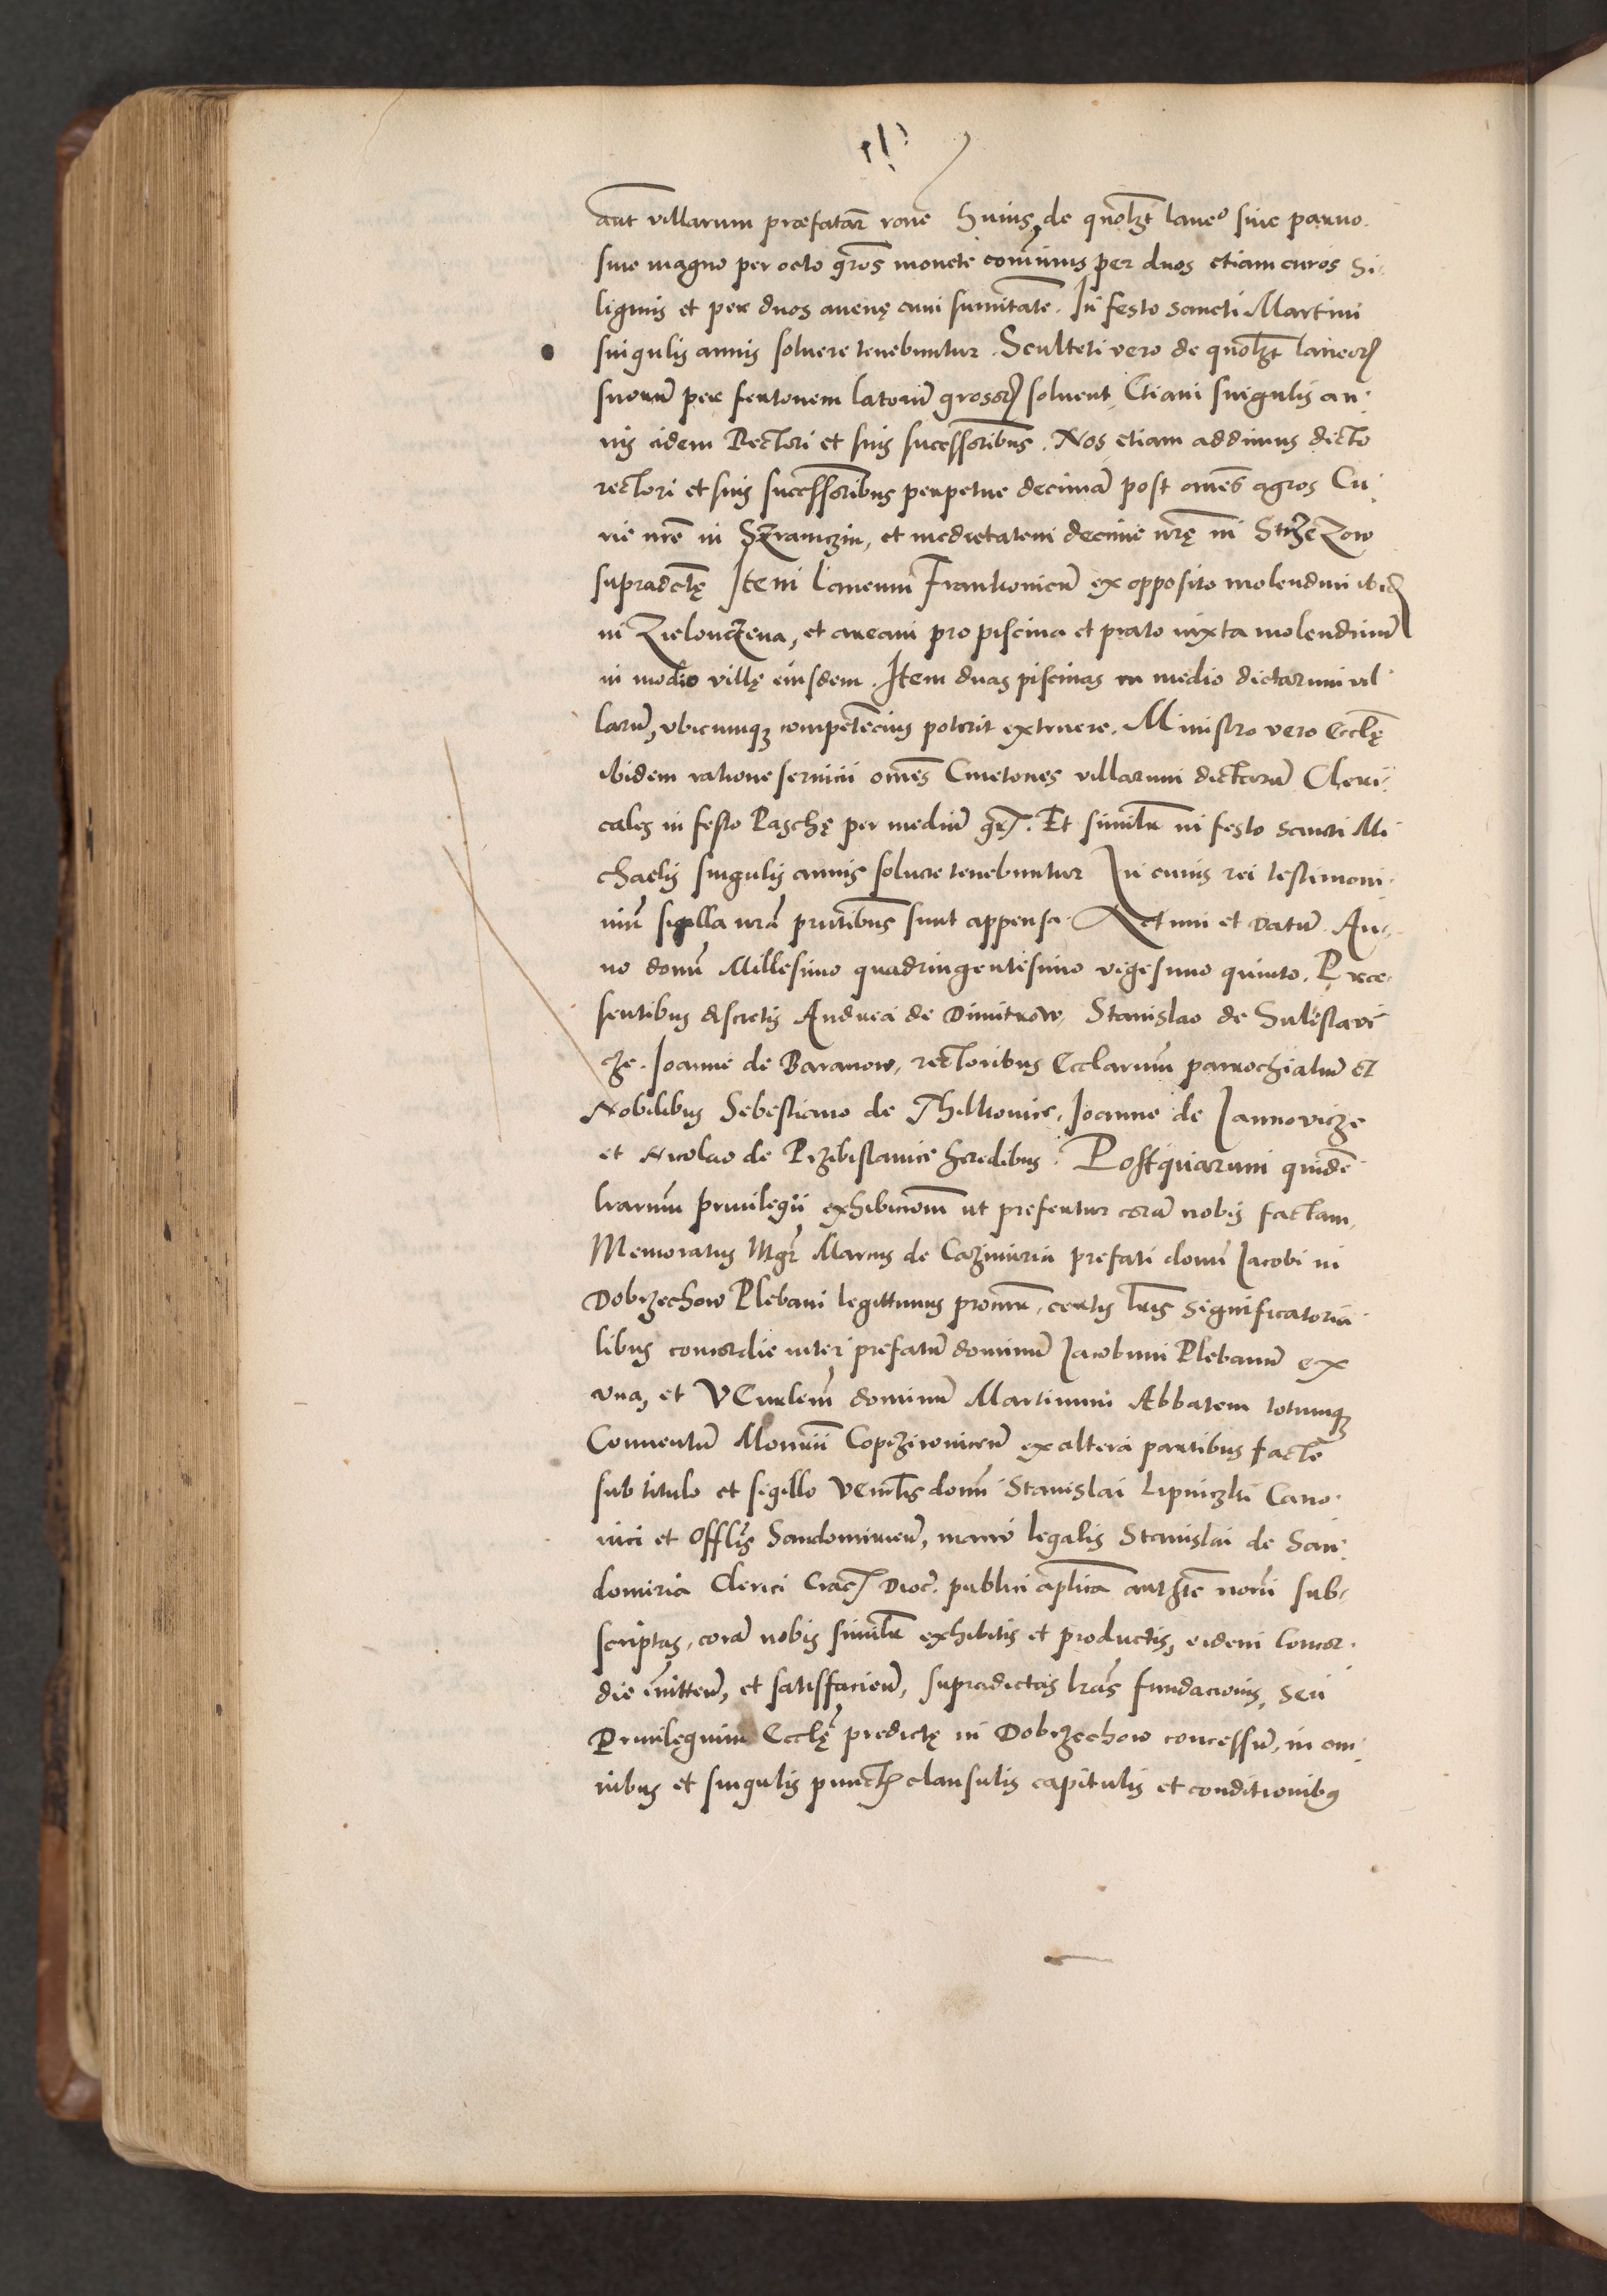 aut villarum præfatar̄ rōne huius, de quolꝫt laneo siue paruo
siue magno per octo grōs monete com̄unis per duos etiam curos Si-
liginis et per duos auenę cum sumitate. In festo sancti Martini
singulis annis soluere tenebuntur. Sculteti vero de quolꝫt laneoꝝ
suorum̄ per fertonem latorum̄ grossoꝝ soluent, Etiam singulis an-
nis eidem Rectori et suis sucessoribus. Nos etiam addimus dicto
rectori et suis successoribus perpetue decimā post omēs agros Cu-
rie nrē in Szramczin, et medietatem decime nrę in StrzeZow
supradctę Item Laneum Franconicum̄ ex opposito molendini ibidꝫ
in Zielonczena, et aream pro piscina et prato iuxta molendinum̄
in medio villę eiusdem. Item duas piscinas in medio dictarum vil-
larum̄, vbicumqꝫ competēcius poterit extruere. Ministro vero Ecclę
ibidem ratione seruicii omēs Cmetones villarum dictarum̄ Cleri-
cales in festo Paschę per medium̄ gr̄. Et similr in festo sancti Mi-
chaelis singulis annis soluere tenebuntur In cuius rei testimoni-
um̄ sigilla nr̄a prntibus sunt appensa. Actum et Datum̄ An-
no domī Millesimo quadringentesimo vigesimo quinto. Præ-
sentibus discretis Andrea de Dimitrow, Stanislao de Sulislavi
cze. Joanne de Baranow, rectoribus Ecclarum̄ parrochialium̄ et
Nobilibus Sebestiano de Thulkowice, Joanne de Jannovicze
et Nicolao de Przibislavice heredibus. Postquarum quidē
lrarum̄ priuilegii exhibicionem̄ ut prefertur corā nobis factam,
Memoratus Mgr̄ Marcus de Cazimiria prefati domī Jacobi in
Dobrzechow Plebani legittimus procur̄, certis lrīs significatoria-
libus concordie inter prefatum̄ dominum̄ Jacobum Plebanum̄ ex
vna, et VEnrlem̄ dominum̄ Martinum Abbatem totumqꝫ
Conuentum̄ Mon̄rii Coprziwnicen̄ ex altera partibus facte
sub titulo et sigillo Venrlis domī Stanislai Lipniczki Cano-
nici et Offlis Sandomirien̄, manu legalis Stanislai de San-
domiria Clerici Crac̄ Dioc̄. publici aplica authte norii sub-
scriptas, corā nobis similr exhibitis et productis, eidem Concor-
die īnitten̄, et satisfacien̄, supradictas lrās fundacionis, seu
Priuilęgium Ecclę predictę in Dobrzechow concessum̄, in om-
nibus et singulis punctꝭ clausulis capitulis et conditionibꝰ